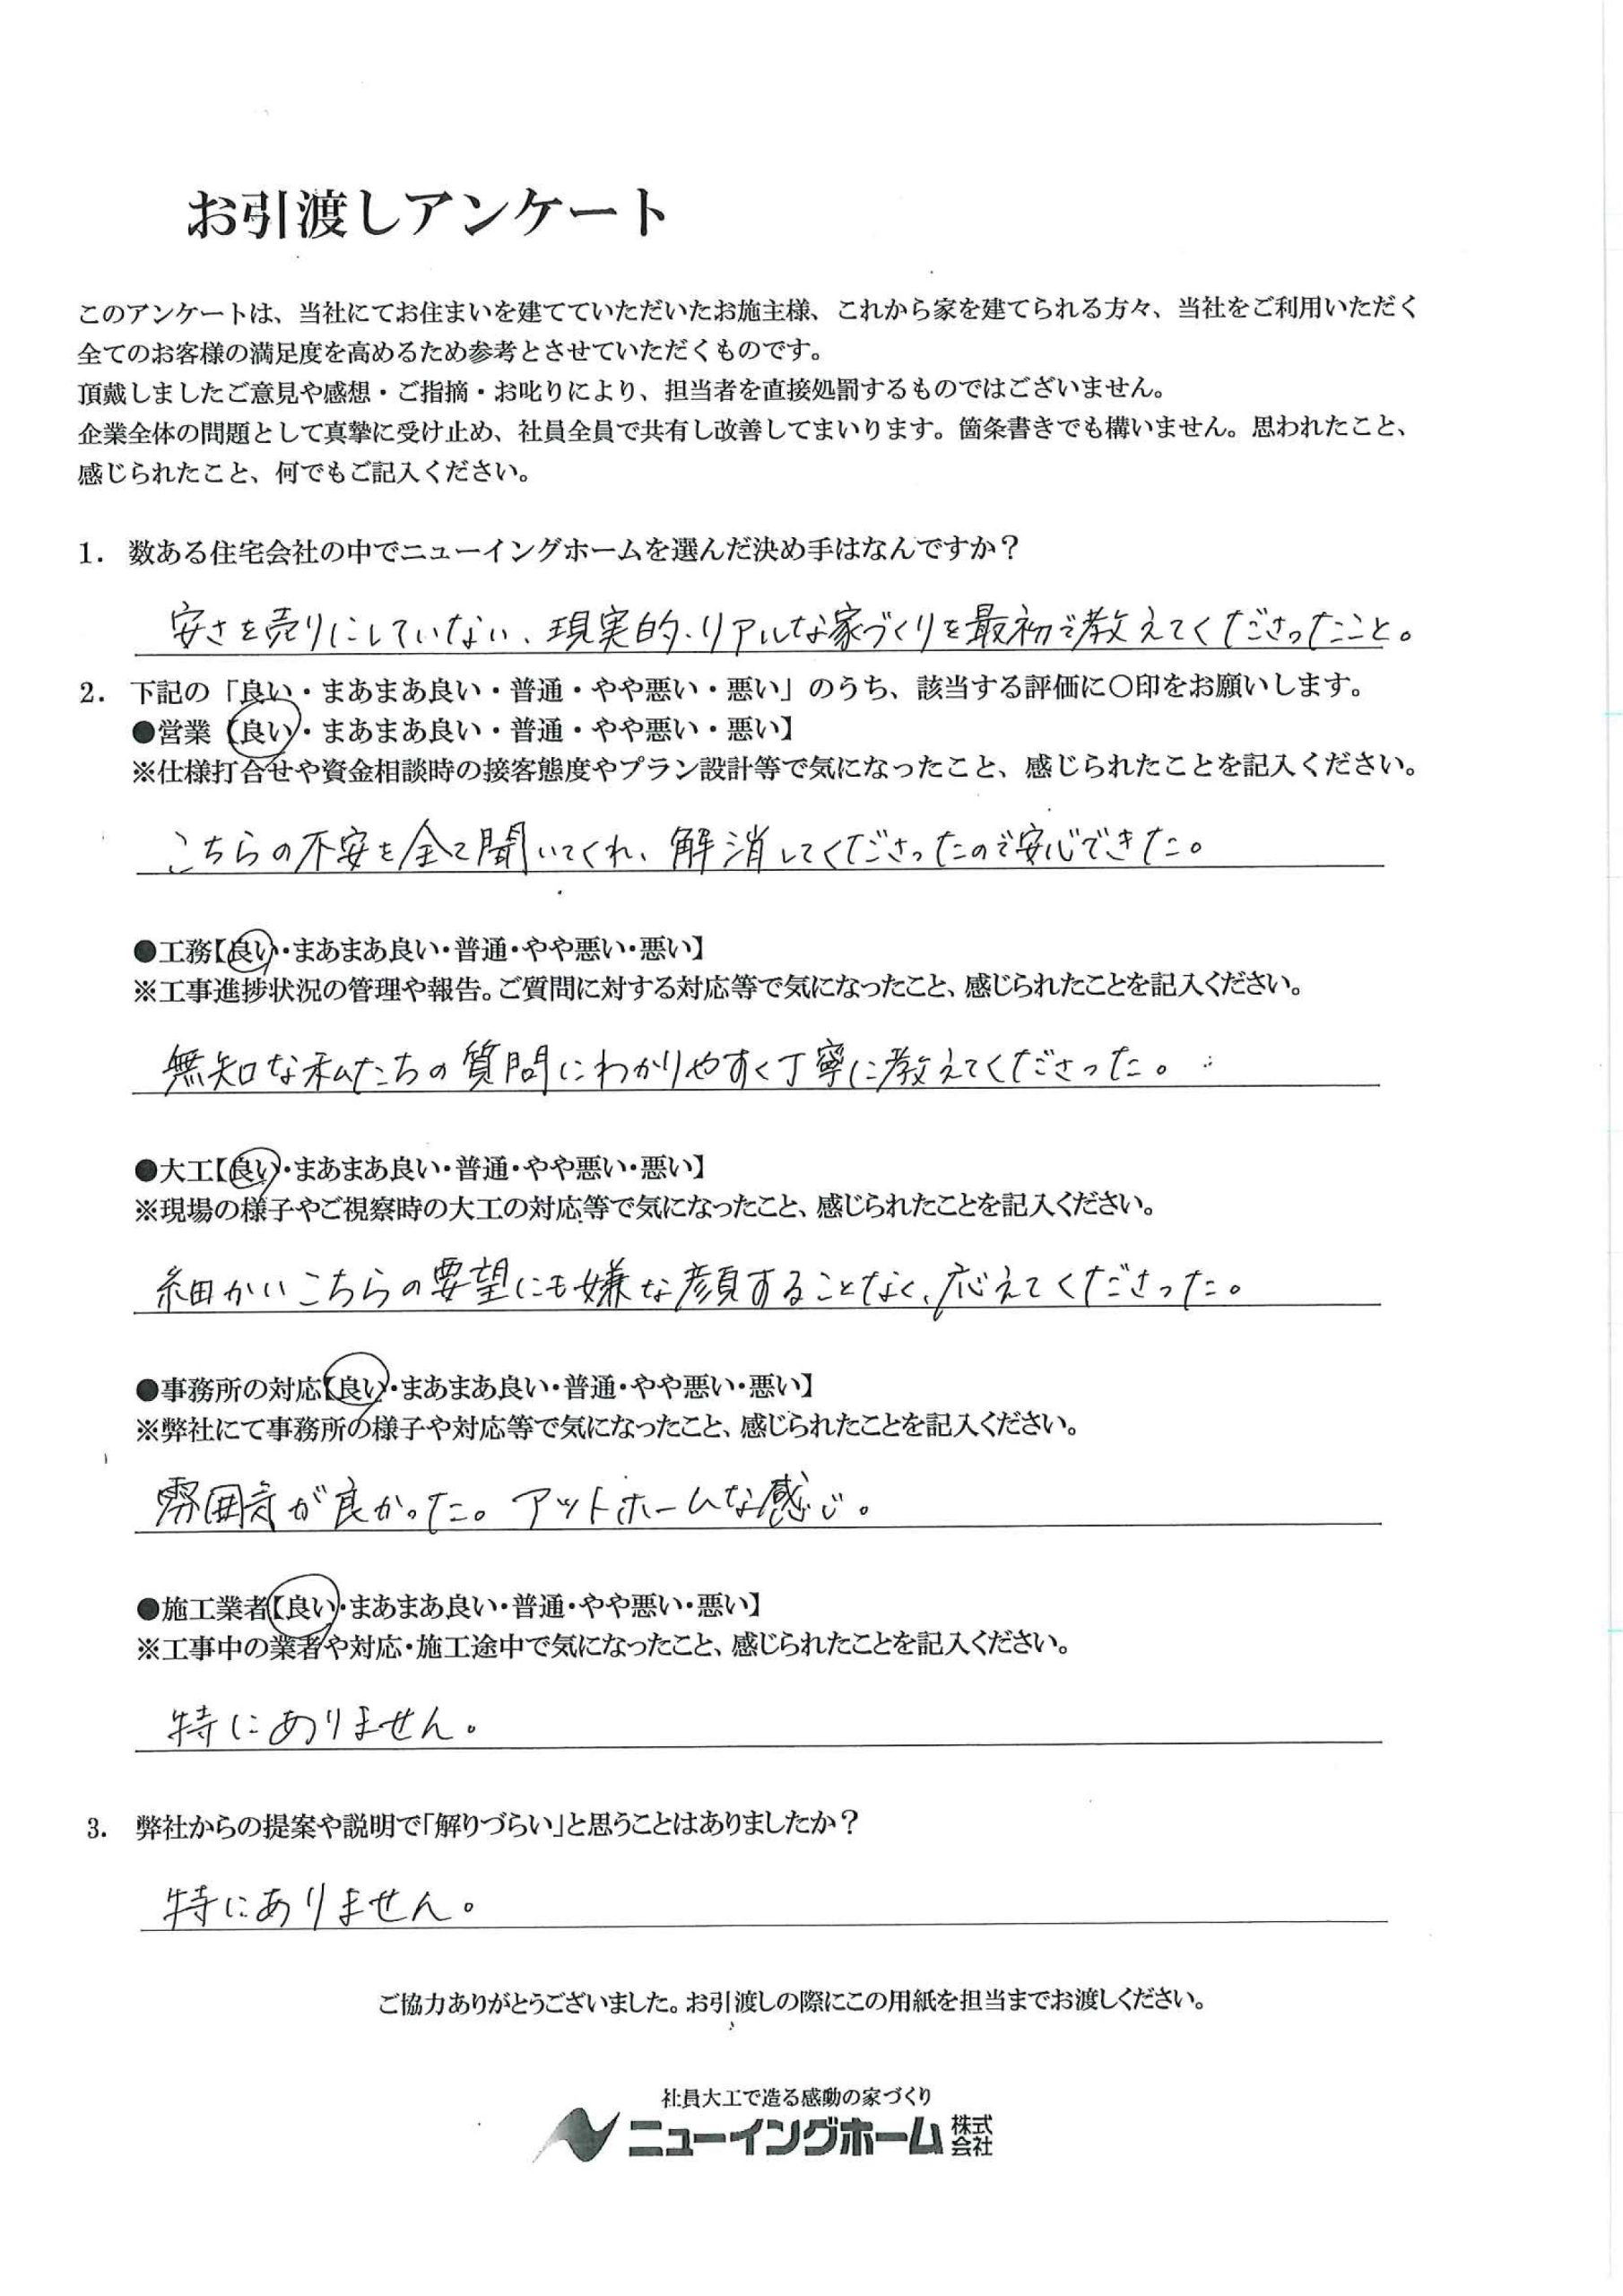 お引渡しアンケート
このアンケートは、当社にてお住まいを建てていただいたお施主様、これから家を建てられる方々、当社をご利用いただく
全てのお客様の満足度を高めるため参考とさせていただくものです。
頂戴しましたご意見や感想・ご指摘・お叱りにより、担当者を直接処罰するものではございません。
企業全体の問題として真摯に受け止め、社員全員で共有し改善してまいります。箇条書きでも構いません。思われたこと、
感じられたこと、何でもご記入ください。
1. 数ある住宅会社の中でニューイングホームを選んだ決め手はなんですか？
安さを売りにしていない、現実的・リアルな家づくりを最初で教えてくださったこと。
2. 下記の「良い・まあまあ良い・普通・やや悪い・悪い」のうち、該当する評価に〇印をお願いします。
●営業【良い・まあまあ良い・普通・やや悪い・悪い】
※仕様打合せや資金相談時の接客態度やプラン設計等で気になったこと、感じられたことを記入ください。
こちらの不安を全て聞いてくれ、解消してくださったので安心できた。
●工務【良い・まあまあ良い・普通・やや悪い・悪い】
※工事進捗状況の管理や報告。ご質問に対する対応等で気になったこと、感じられたことを記入ください。
無知な私たちの質問にわかりやすく丁寧に教えてくださった。
●大工【良い・まあまあ良い・普通・やや悪い・悪い】
※現場の様子やご視察時の大工の対応等で気になったこと、感じられたことを記入ください。
細かいこちらの要望にも嫌な顔することなく、応えてくださった。
●事務所の対応【良い・まあまあ良い・普通・やや悪い・悪い】
※弊社にて事務所の様子や対応等で気になったこと、感じられたことを記入ください。
雰囲気が良かった。アットホームな感じ。
●施工業者【良い・まあまあ良い・普通・やや悪い・悪い】
※工事中の業者や対応・施工途中で気になったこと、感じられたことを記入ください。
特にありません。
3. 弊社からの提案や説明で「解りづらい」と思うことはありましたか？
特にありません。
ご協力ありがとうございました。お引渡しの際にこの用紙を担当までお渡しください。
社員大工で造る感動の家づくり
ニューイングホーム株式会社